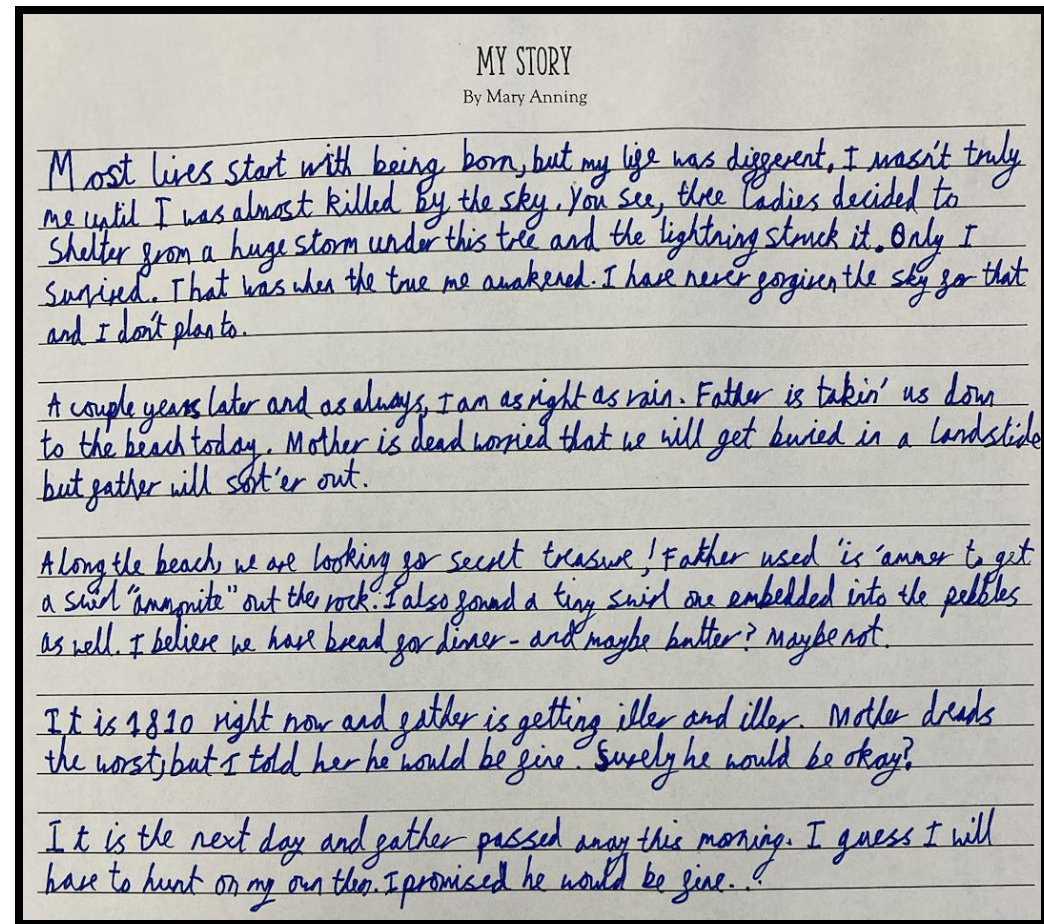 MY STORY
By Mary Anning
Most lives start with being born, but my life was different, I wasn't truly
me until I was almost killed by the sky. You see, three ladies decided to
Shelter from a huge storm under this tree and the lightning struck it. Only I
Survived. That was when the true me awakened. I have never forgiven the sky for that
and I don't plan to.
A couple years later and as always, I am as right as rain. Father is takin' us down
to the beach today. Mother is dead worried that we will get buried in a landslide
but father will sort'er out.
Along the beach, we are looking for secret treasure! Father used 'is 'ammer to get
a swirl "ammonite" out the rock. I also found a tiny swirl one embedded into the pebbles
as well. I believe we have bread for dinner - and maybe butter? Maybe not.
It is 1810 right now and father is getting iller and iller. Mother dreads
the worst, but I told her he would be fine. Surely he would be okay?
It is the next day and father passed away this morning. I guess I will
have to hunt on my own then. I promised he would be fine...